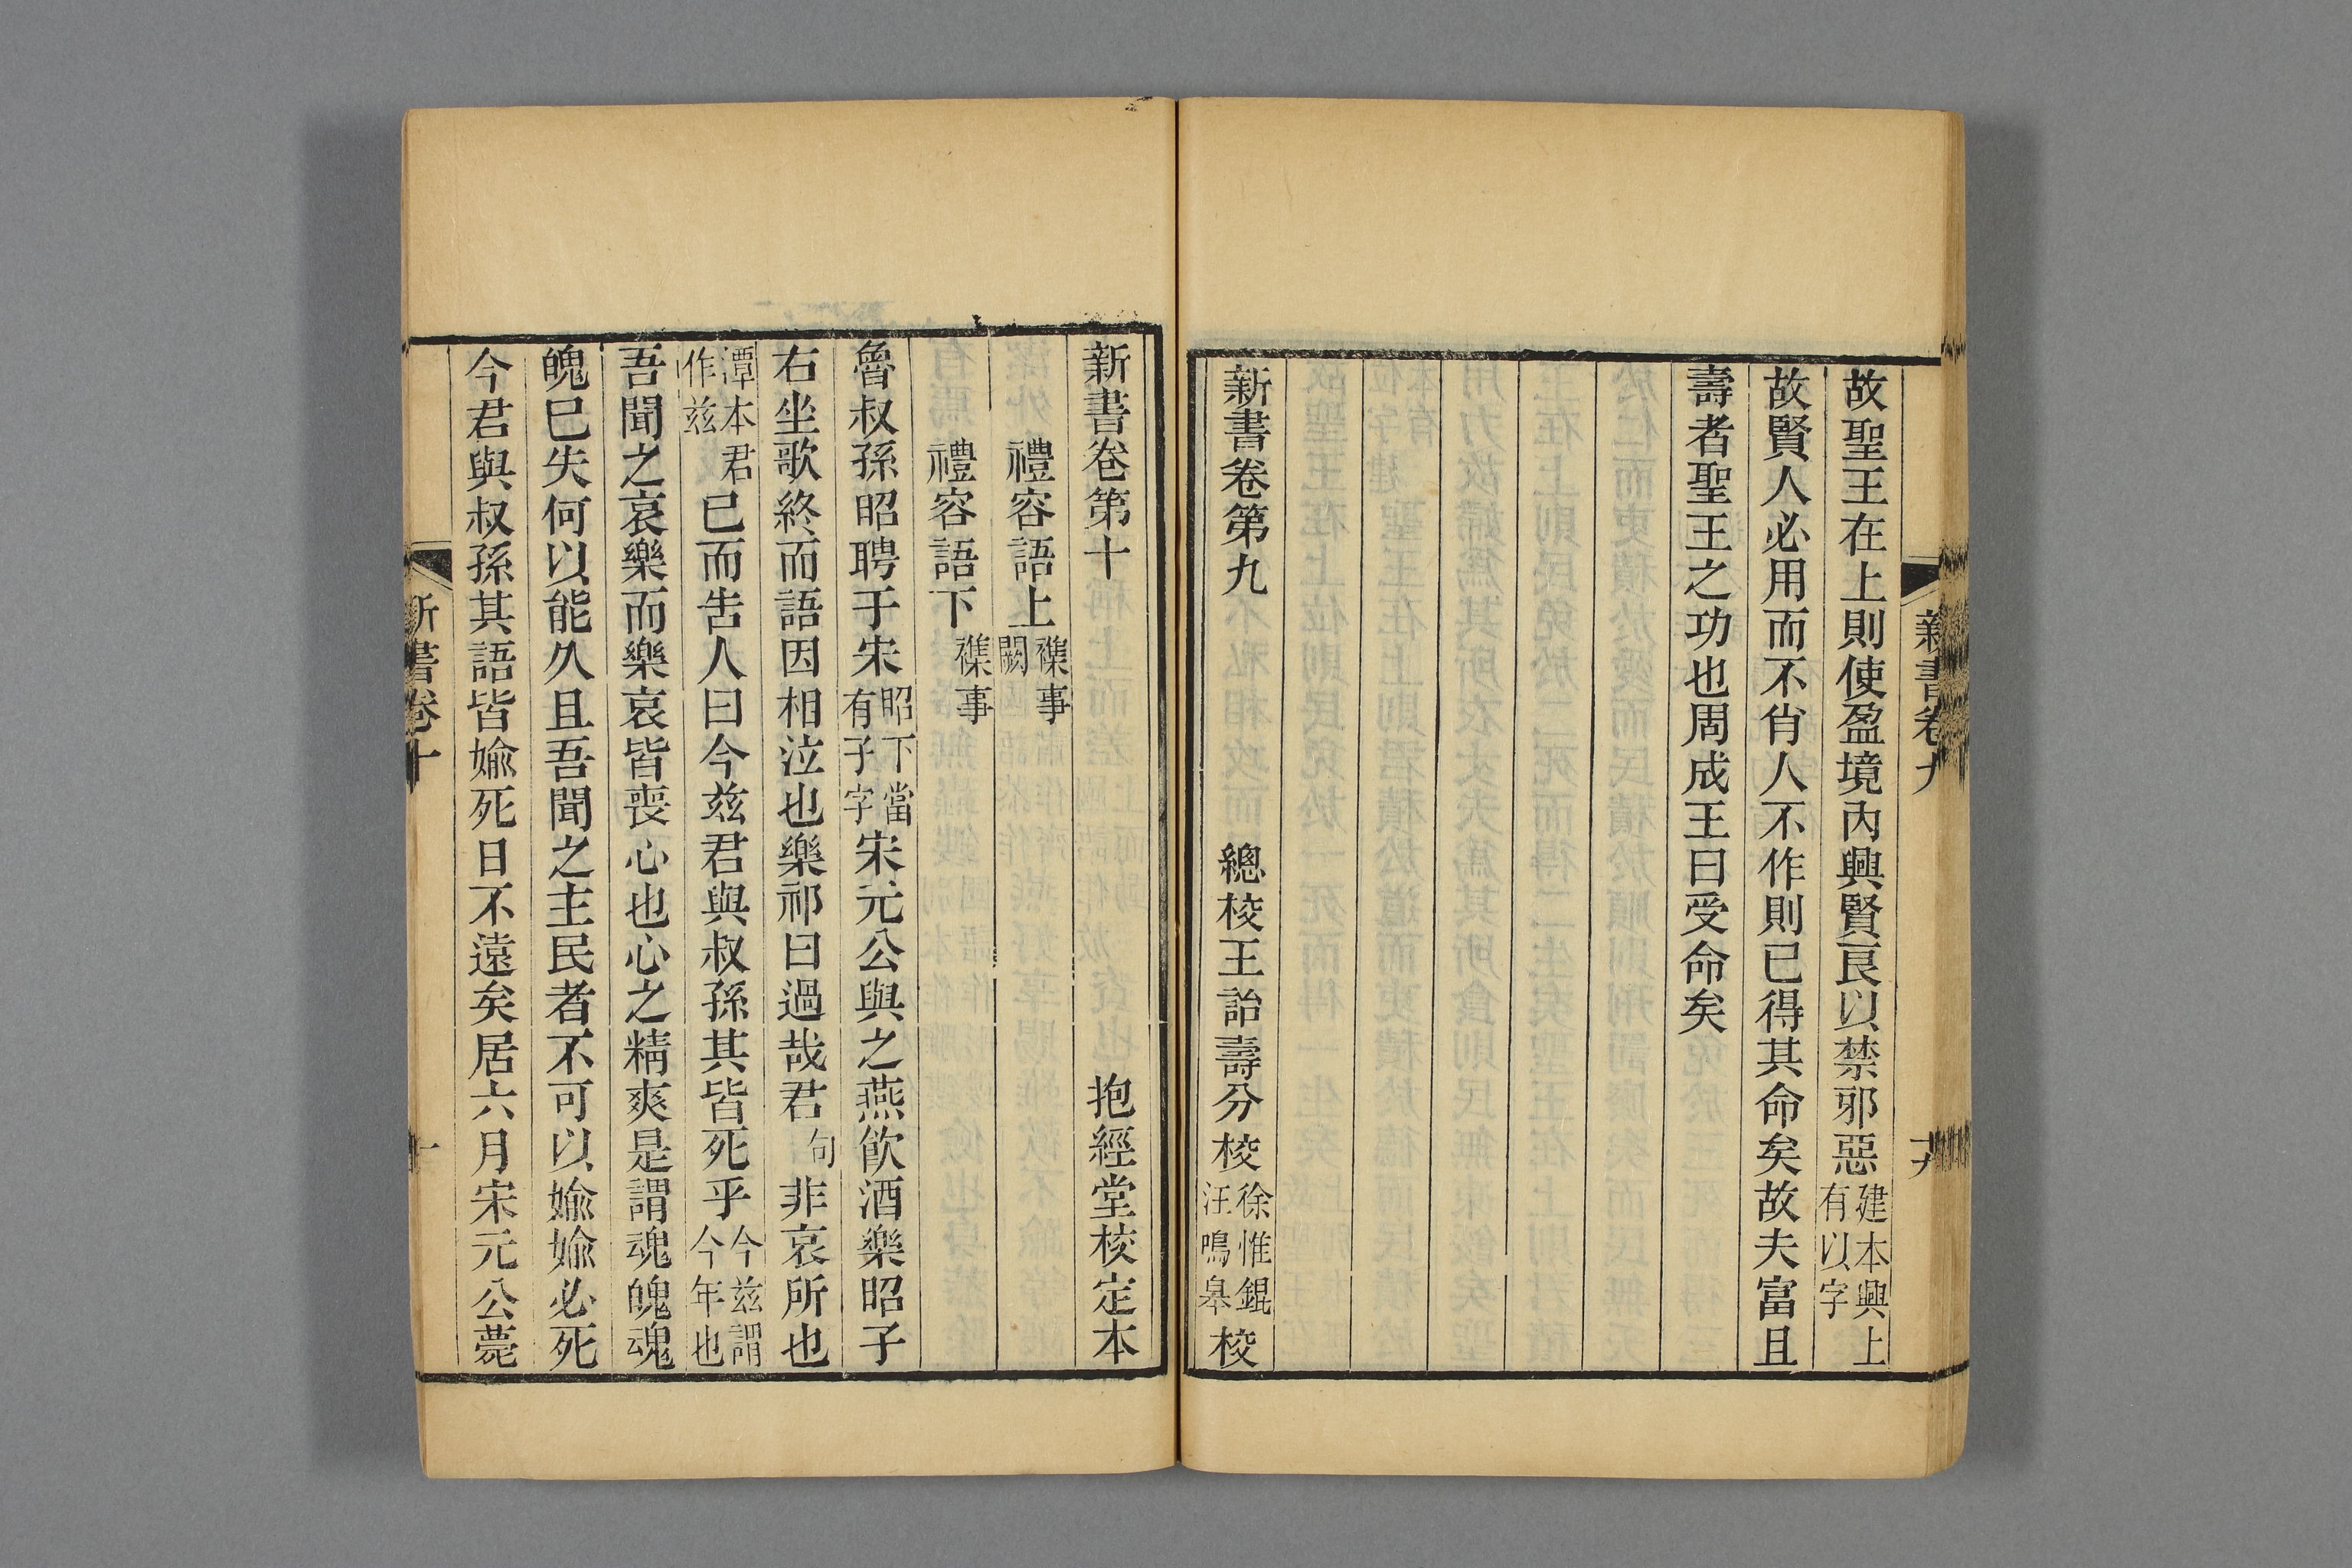 新書卷九
十九
故聖王在上則使盈境內興賢良以禁邪惡建本興上有以字
故賢人必用而不肖人不作則已得其命矣故夫富且
壽者聖王之功也周成王曰受命矣
新書卷第九 總校王詒壽分校徐惟錕汪鳴皋校
新書卷第十 抱經堂校定本
禮容語上襍事闕
禮容語下襍事
魯叔孫昭聘于宋昭下當有子字宋元公與之燕飮酒樂昭子
右坐歌終而語因相泣也樂祁曰過哉君句非哀所也
潭本君作兹已而吿人曰今兹君與叔孫其皆死乎今兹謂今年也
吾聞之哀樂而樂哀皆喪心也心之精爽是謂魂魄魂
魄已失何以能久且吾聞之主民者不可以婾婾必死
今君與叔孫其語皆婾死日不遠矣居六月宋元公薨
新書卷十
一